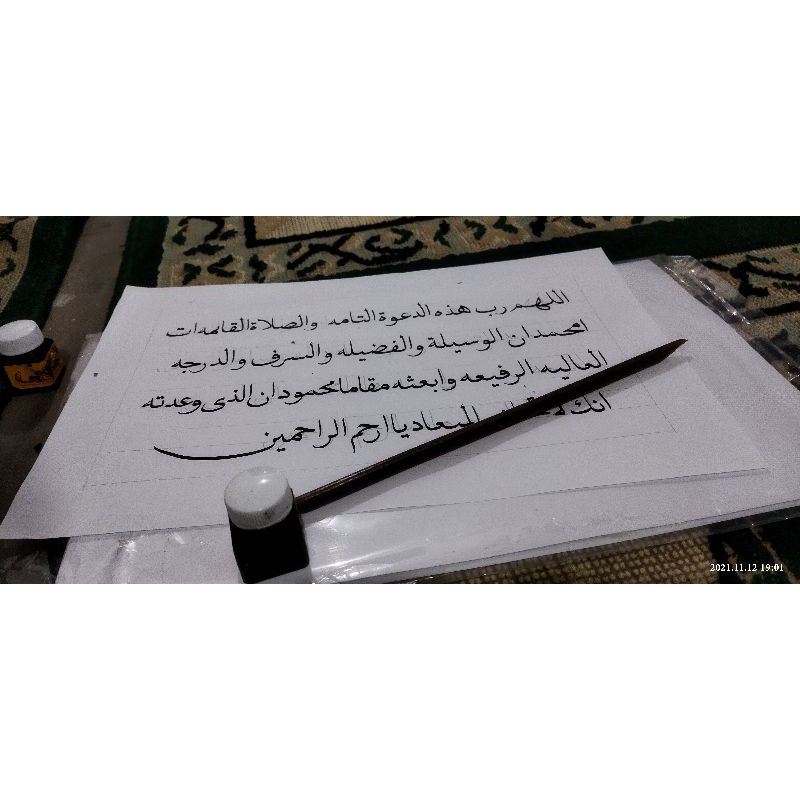 اللهم رب هذه الدعوة التامه والصلاة القائمه ات
محمدان الوسيلة والفضيله والشرف والدرجه
العاليه الرفيعه وابعثه مقاما محمودان الذى وعدته
انك لا الميعاد يا ارحم الراحمين
2021.11.12 19:01